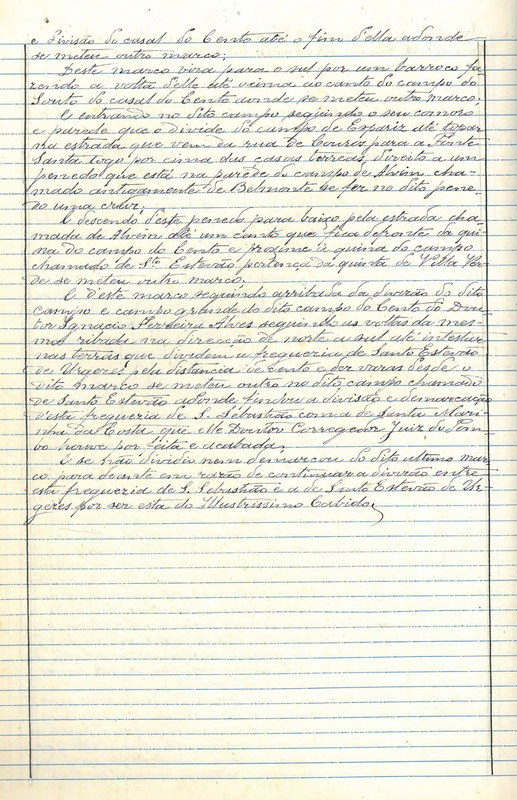 e divisão do casal do Cento até o fim d'ella adonde
se meteu outro marco;
Deste marco vira para o sul por um barroco fa-
zendo a volta d'elle até cima ao canto do campo do
Souto do casal do Cento aonde se meteu outro marco;
E entrando no dito campo seguindo o seu comoro
e parede que o divide do campo de até topar
na estrada que vem da rua de Couros para a Fonte
Santa logo por cima das casas terreas, direito a um
penedo que está na parede do campo de Alvim cha-
mado antigamente de Belmonte se fez no dito pene-
do uma cruz;
E descendo d'este penedo para baixo pela estrada cha-
mada de Alvim até um canto que fica defronte da qui-
na do campo do Cento e proximo á quina do campo
chamado de Sto Estevão pertença da quinta de Villa Ver-
de se meteu outro marco;
E d'este marco seguindo arribada da divisão do dito
campo e campo grande do dito campo do Cento do Dou-
tor Ignacio Ferreira Alves seguindo as voltas da mes-
ma ribada na direcção de norte a sul até intestar
nas terras que dividem a freguezia de Santo Estevão
de Urgezes pela distancia de cento e dez varas desde o
dito marco se meteu outro no dito campo chamado
de Santo Estevão adonde findou a divisão e demarcação
d'esta freguezia de S. Sebastião com a de Santa Mari-
nha da Costa que elle Doutor Corregedor Juiz do Tom-
bo houve por feita e acabada;
E se não dividiu nem demarcou do dito ultimo mar-
co para deante em razão de continuar a divisão entre
esta freguezia de S. Sebastião e a de Santo Estevão de Ur-
gezes por ser esta do Illustrissimo Cabido.